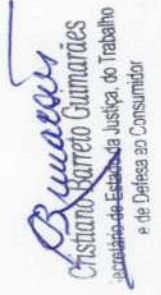 Cristiano Barreto Guimarães
Secretário de Estado da Justiça, do Trabalho
e de Defesa ao Consumidor